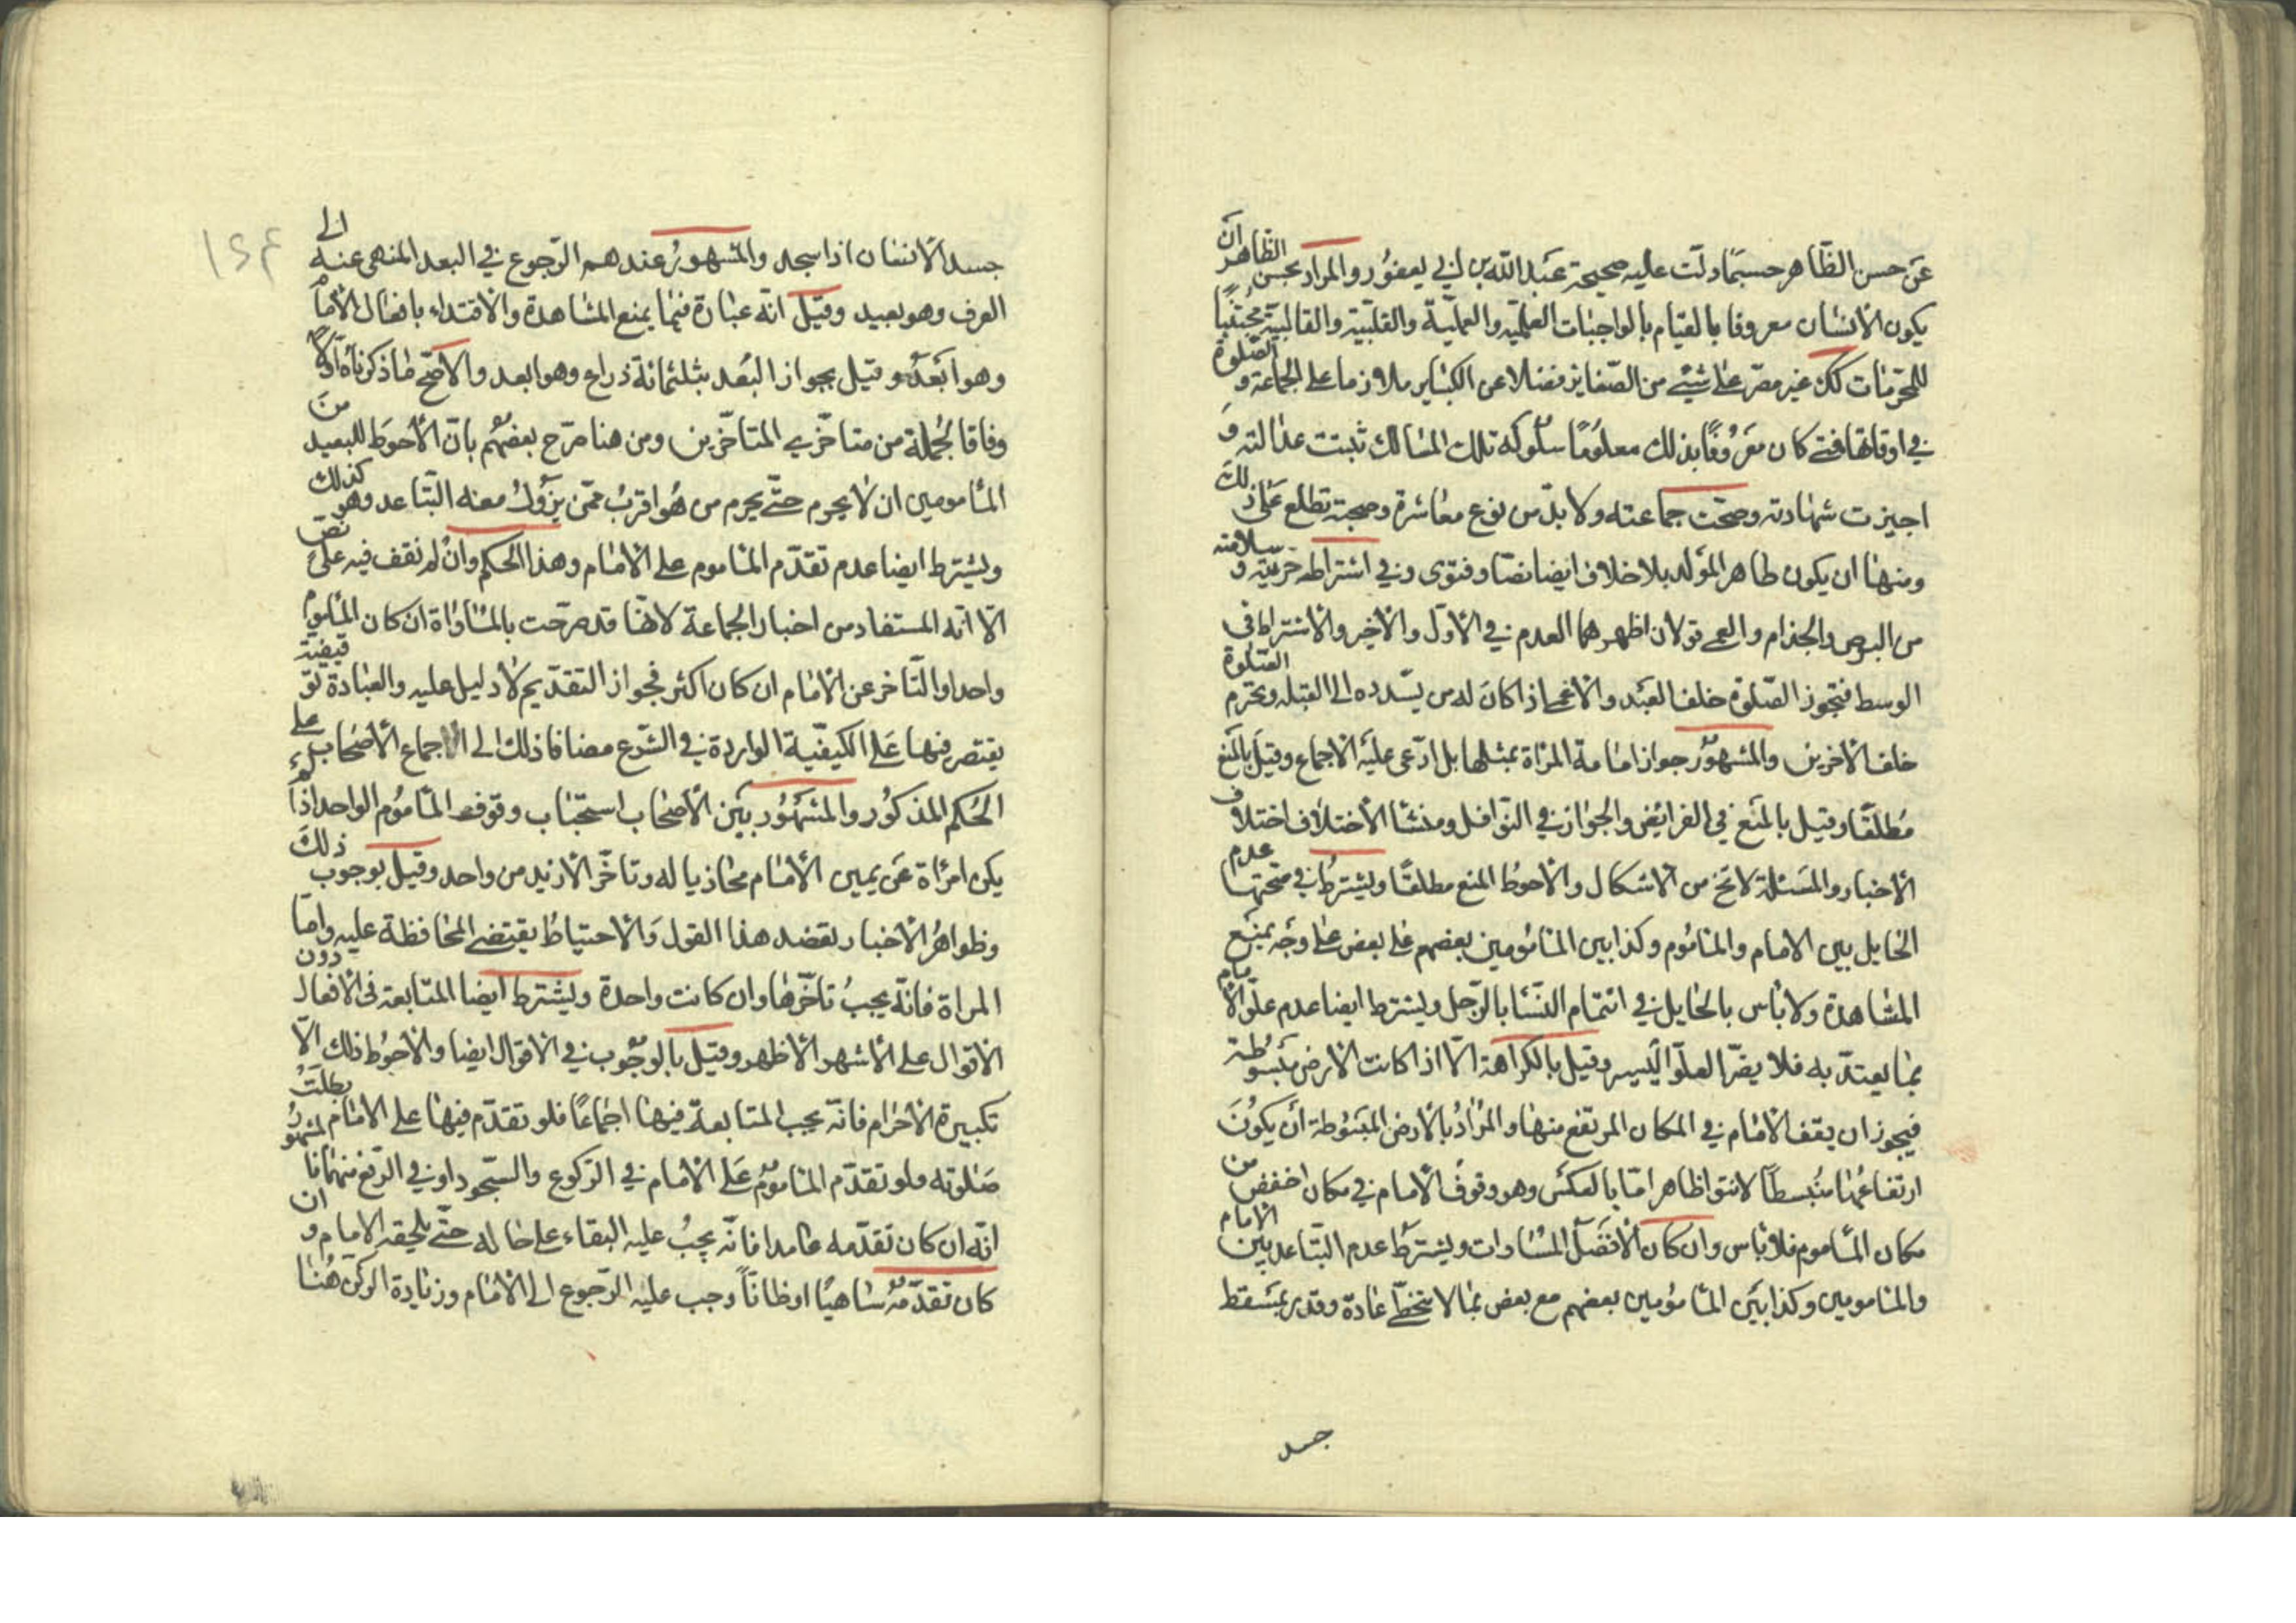 عن حسن الظاهر حسبما دلت عليه صحيحة عبد الله بن ابي يعفور والمراد بحسن الظاهر ان
يكون الانسان معروفا بالقيام بالواجبات العلمية والعملية والقلبية والقالبية مجتنبا
للمحرمات كك غير مصر على شيئ من الصغاير فضلا عن الكباير ملازما على الجماعة و الصلوة
في اوقاتها فمتى كان معروفا بذلك معلوما سلوكه تلك المسالك ثبتت عدالته و
اجيزت شهادته وصحت جماعته ولا بد من نوع معاشرة وصحبة تطلع على ذلك
ومنها ان يكون طاهر المولد بلا خلاف ايضا نصا وفتوى وفي اشتراط حريته و سلامته
من البرص والجذام والعمى قولان اظهرهما العدم في الاول والاخير والاشتراط في
الوسط فتجوز الصلوة خلف العبد والاعمى اذا كان له من يسدده الى القبلة ويحرم الصلوة
خلف الاخرين والمشهور جواز امامة المراة بمثلها بل ادعى عليه الاجماع وقيل بالمنع
مطلقا وقيل بالمنع في الفرائض والجواز في النوافل ومنشا الاختلاف اختلاف
الاخبار والمسئلة لا تخ من الاشكال والاحوط المنع مطلقا ويشترط في صحتها عدم
الحايل بين الامام والماموم وكذا بين المامومين بعضهم على بعض على وجه يمنع
المشاهدة ولا باس بالحايل في ائتمام النسا بالرجل ويشترط ايضا عدم علو الامام
بما يعتد به فلا يضر العلو اليسير وقيل بالكراهة الا اذا كانت الارض مبسوطة
فيجوز ان يقف الامام في المكان المرتفع منها والمراد بالارض المبسوطة ان يكون
ارتفاعها منبسطا لا نتوا ظاهرا اما بالعكس وهو وقوف الامام في مكان اخفض من
مكان الماموم فلا باس وان كان الافضل المساوات ويشترط عدم التباعد بين الامام
والمامومين وكذا بين المامومين بعضهم مع بعض بما لا يتخطى عادة وقدر بمسقط
جسد
١٢٤
جسد الانسان اذا سجد والمشهور عندهم الرجوع في البعد المنهى عنه الى
العرف وهو بعيد وقيل انه عبارة فيما يمنع المشاهدة والاقتداء بافعال الامام
وهو ابعد وقيل بجواز البعد بثلثمائة ذراع وهو ابعد والاصح ما ذكرناه اولا
وفاقا لجملة من متاخري المتاخرين ومن هنا صرح بعضهم بان الاحوط للبعيد من
المامومين ان لا يحرم حتى يحرم من هو اقرب ممن يزول معه التباعد وهو كذلك
ويشترط ايضا عدم تقدم الماموم على الامام وهذا الحكم وان لم نقف فيه على نص
الا انه المستفاد من اخبار الجماعة لانها قد صرحت بالمساواة ان كان الماموم
واحدا والتاخر عن الامام ان كان اكثر فجواز التقديم لا دليل عليه والعبادة توقيفية
يقتصر فيها على الكيفية الواردة في الشرع مضافا ذلك الى اجماع الاصحاب على
الحكم المذكور والمشهور بين الاصحاب استحباب وقوف الماموم الواحد اذا لم
يكن امراة عن يمين الامام محاذيا له وتاخر الازيد من واحد وقيل بوجوب ذلك
وظواهر الاخبار تعضد هذا القول والاحتياط يقتضي المحافظة عليه واما
المراة فانه يجب تاخرها وان كانت واحدة ويشترط ايضا المتابعة في الافعال دون
الاقوال على الاشهر الاظهر وقيل بالوجوب في الاقوال ايضا والاحوط ذلك الا
تكبيرة الاحرام فانه يجب المتابعة فيها اجماعا فلو تقدم فيها على الامام بطلت
صلوته ولو تقدم الماموم على الامام في الركوع والسجود او في الرفع منهما فالمشهور
انه ان كان تقدمه عامدا فانه يجب عليه البقاء على حاله حتى يلحقه الامام و ان
كان تقدمه ساهيا او ظانا وجب عليه الرجوع الى الامام وزيادة الركن هنا